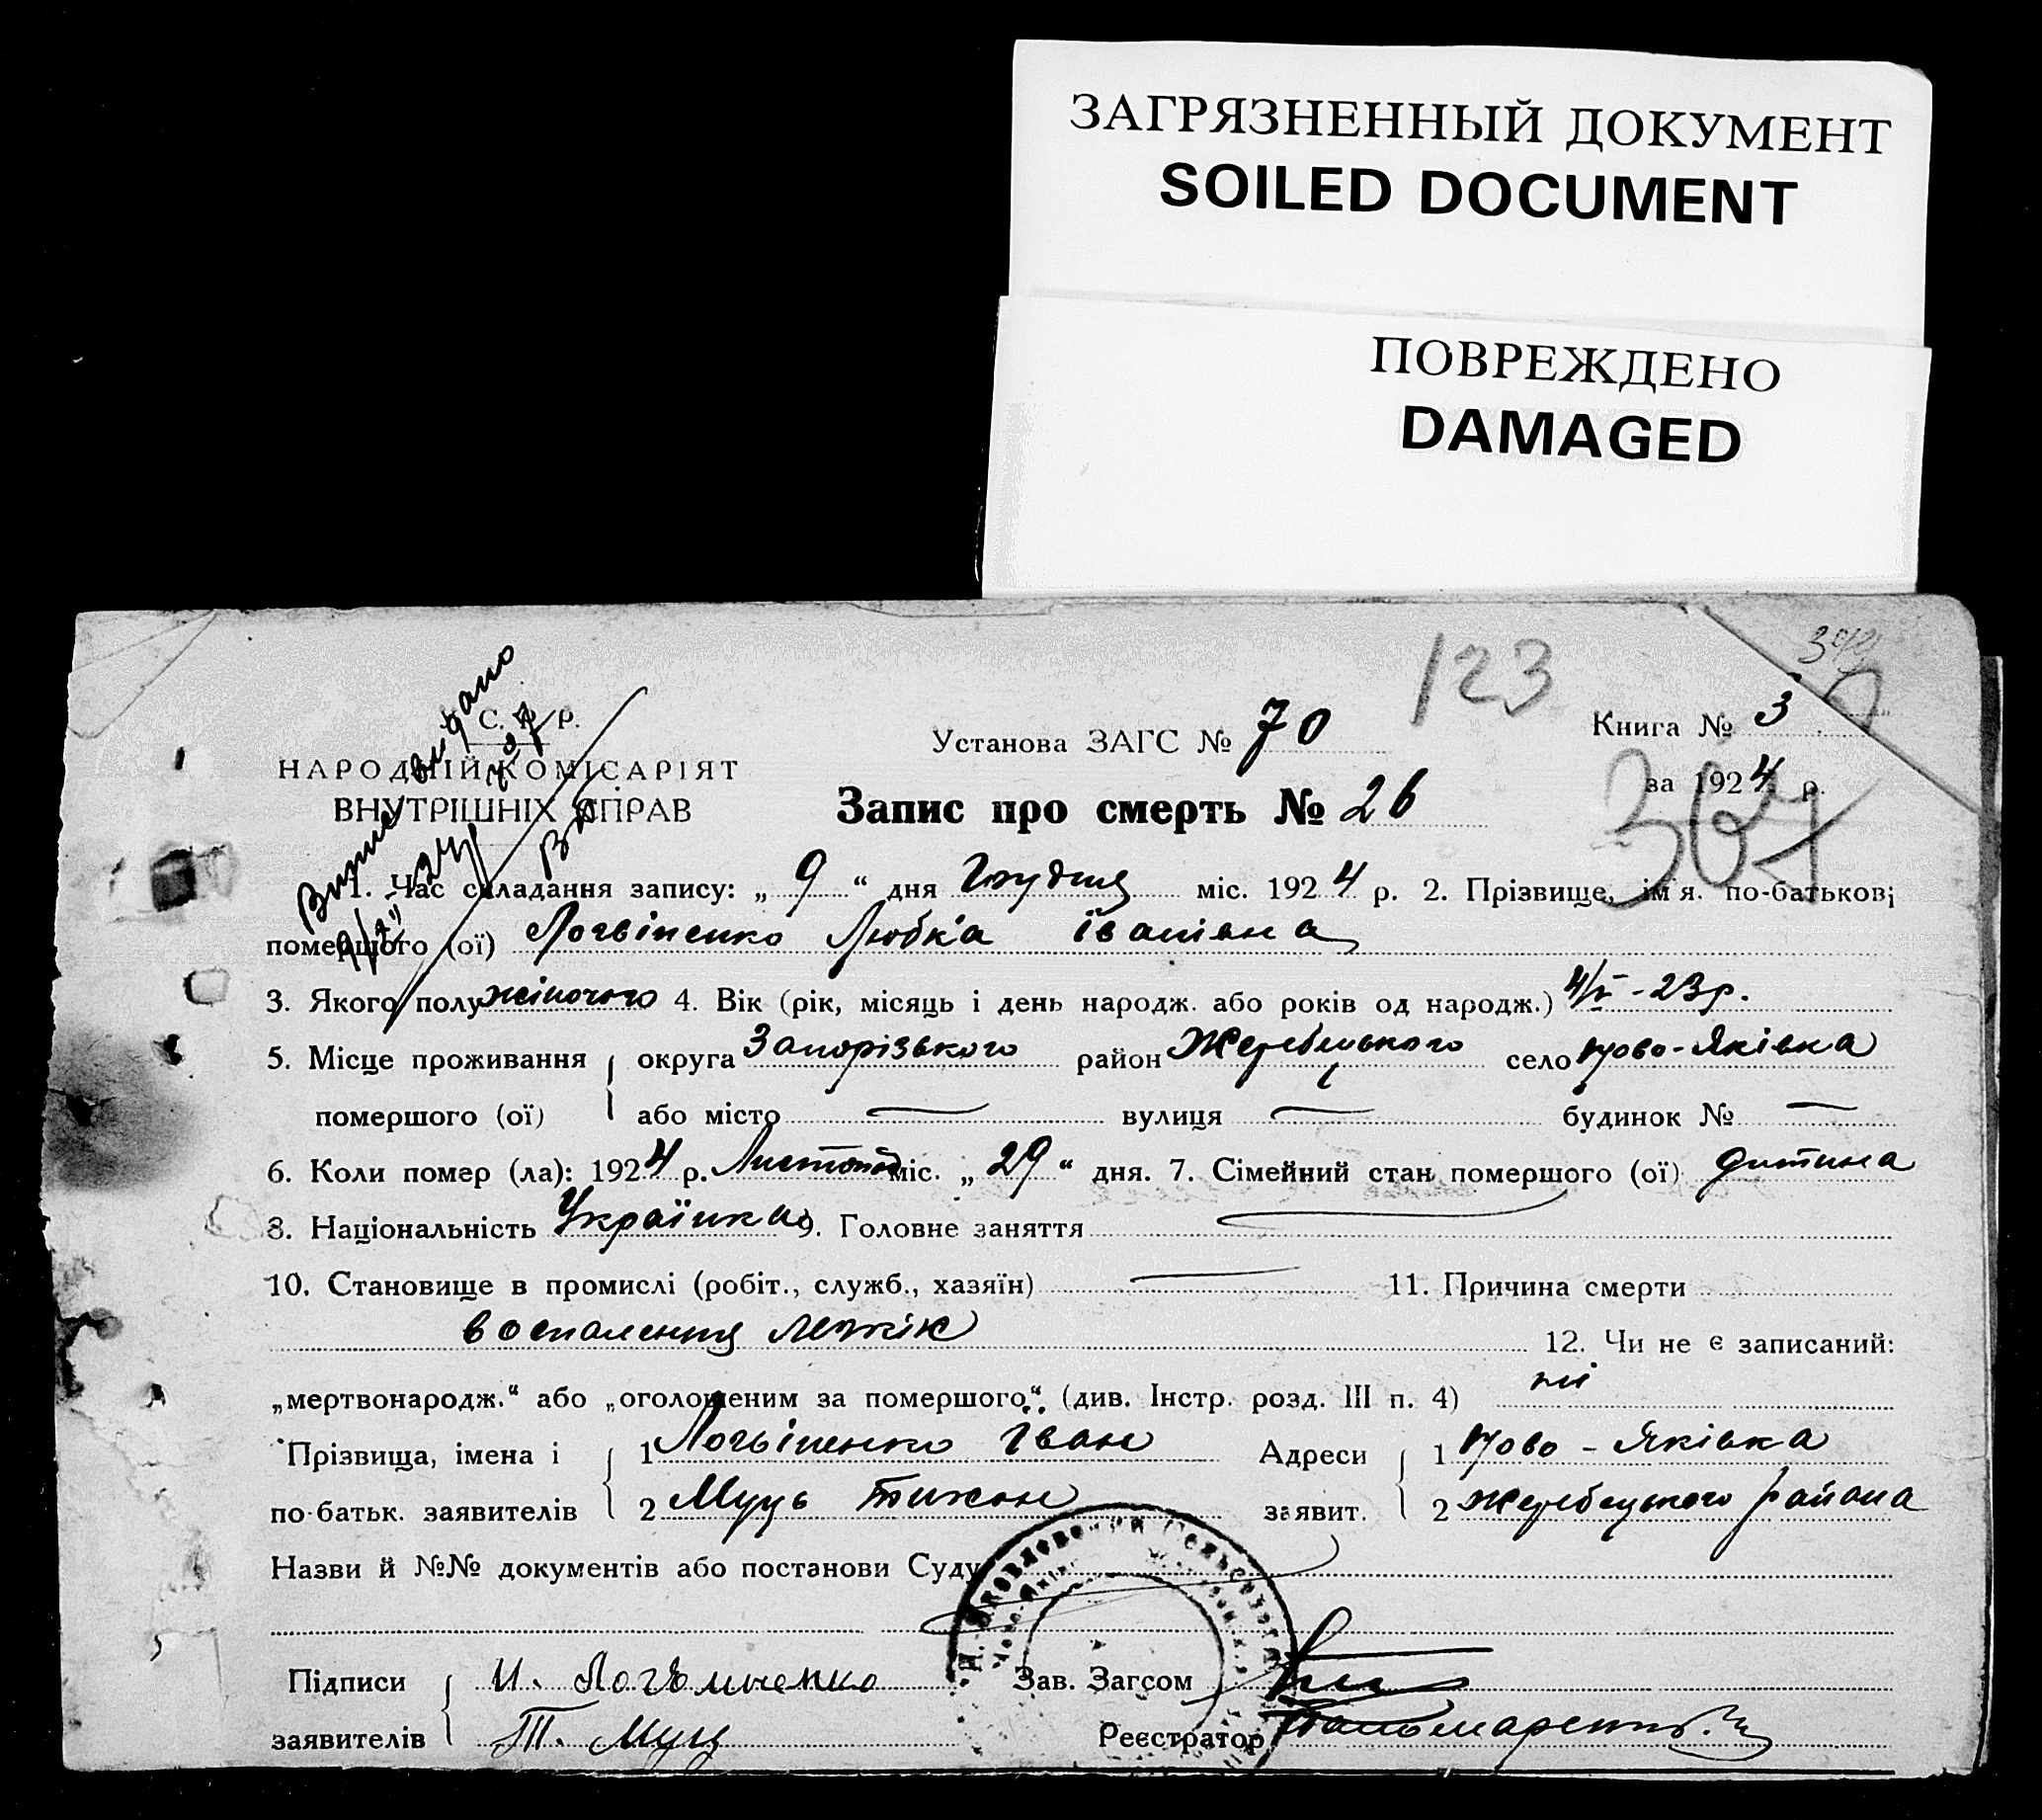 ЗАГРЯЗНЕННЫЙ ДОКУМЕНТ
SOILED DOCUMENT
ПОВРЕЖДЕНО
DAMAGED
123
С. Р. Р. Установа ЗАГС № 70 Книга № 3
НАРОДНІЙ КОМІСАРІЯТ за 1924 р.
ВНУТРІШНІХ СПРАВ Запис про смерть № 26
видано
1. Час складання запису: „ 9 “ дня Грудня міс. 1924 р. 2. Прізвище, ім'я. по-батькові
помершого (ої) Логвіненко Любка Іванівна
3. Якого полу жіночого 4. Вік (рік, місяць і день народж. або років од народж.) -23р.
5. Місце проживання округа Запорізького район Жеребецького село Ново-Яківка
помершого (ої) або місто — вулиця — будинок № —
6. Коли помер (ла): 1924 р. Листопад міс. „ 29 “ дня. 7. Сімейний стан помершого (ої) дитина
8. Національність Українка 9. Головне заняття —
10. Становище в промислі (робіт., служб., хазяїн) — 11. Причина смерти
воспалення легкік 12. Чи не є записаний:
„мертвонародж.“ або „оголошеним за помершого“ (див. Інстр. розд. III п. 4) ні
Прізвища, імена і 1 Логвіненко Іван Адреси 1 Ново - Яківка
по-батьк. заявителів 2 Муць Тихон заявит. 2 Жеребецького района
Назви й №№ документів або постанови Суду
Підписи И. Логвиненко Зав. Загсом
заявителів Т. Муц Реєстратор